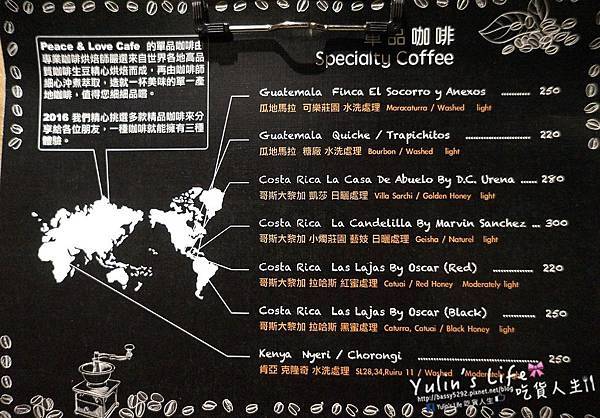 單品咖啡
Specialty Coffee
Peace & Love Cafe 的單品咖啡由
專業咖啡烘焙師嚴選來自世界各地高品
質咖啡生豆精心烘焙而成，再由咖啡師
細心沖煮萃取，造就一杯美味的單一產
地咖啡，值得您細細品嚐。
2016 我們精心挑選多款精品咖啡來分
享給各位朋友，一種咖啡就能擁有三種
體驗。
Guatemala Finca EL Socorro y Anexos 250
瓜地馬拉 可樂莊園 水洗處理 Maracaturra / Washed light
Guatemala Quiche / Trapichitos 220
瓜地馬拉 糖廠 水洗處理 Bourbon / Washed light
Costa Rica La Casa De Abuelo By D.C. Urena 280
哥斯大黎加 凱莎 日曬處理 Villa Sarchi / Golden Honey light
Costa Rica La Candelilla By Marvin Sanchez ... 300
哥斯大黎加 小燭莊園 藝妓 日曬處理 Geisha / Naturel light
Costa Rica Las Lajas By Oscar (Red) 220
哥斯大黎加 拉哈斯 紅蜜處理 Catuai / Red Honey Moderately light
Costa Rica Las Lajas By Oscar (Black) 250
哥斯大黎加 拉哈斯 黑蜜處理 Caturra, Catuai / Black Honey light
Kenya Nyeri / Chorongi 250
肯亞 克隆奇 水洗處理 SL28,34,Ruiru 11 / Washed Moderately
Yulin's Life
http://bassy5292.pixnet.net/blog
Yulin's Life 吃貨人生
吃貨人生!!